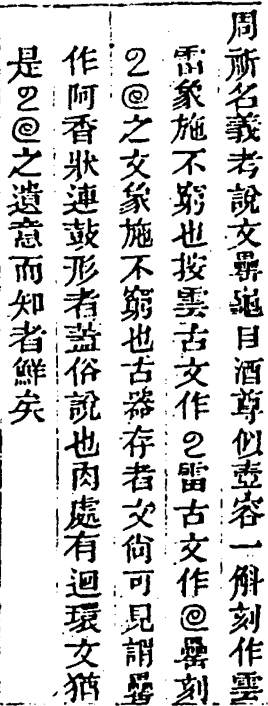 周祈名義考說文罍龜目酒尊似壺容一斛刻作雲
雷象施不窮也按雲古文作𠄔雷古文作@罍刻
𠄔@之文象施不窮也古器存者文尙可見謂罍
作阿香狀連鼓形者葢俗說也肉處有迴環文猶
是𠄔@之遺意而知者鮮矣